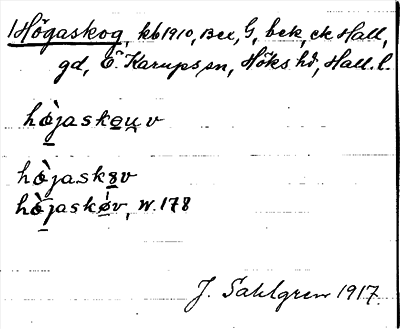 Högaskog, kb 1910, Bex, G, bek, ek Hall,
gd, Ö. Karups sn, Höks hd, Hall. l.
hòjaskeuv
hòjaskɤv
hòjaskøv, W. 178
J. Sahlgren 1917.